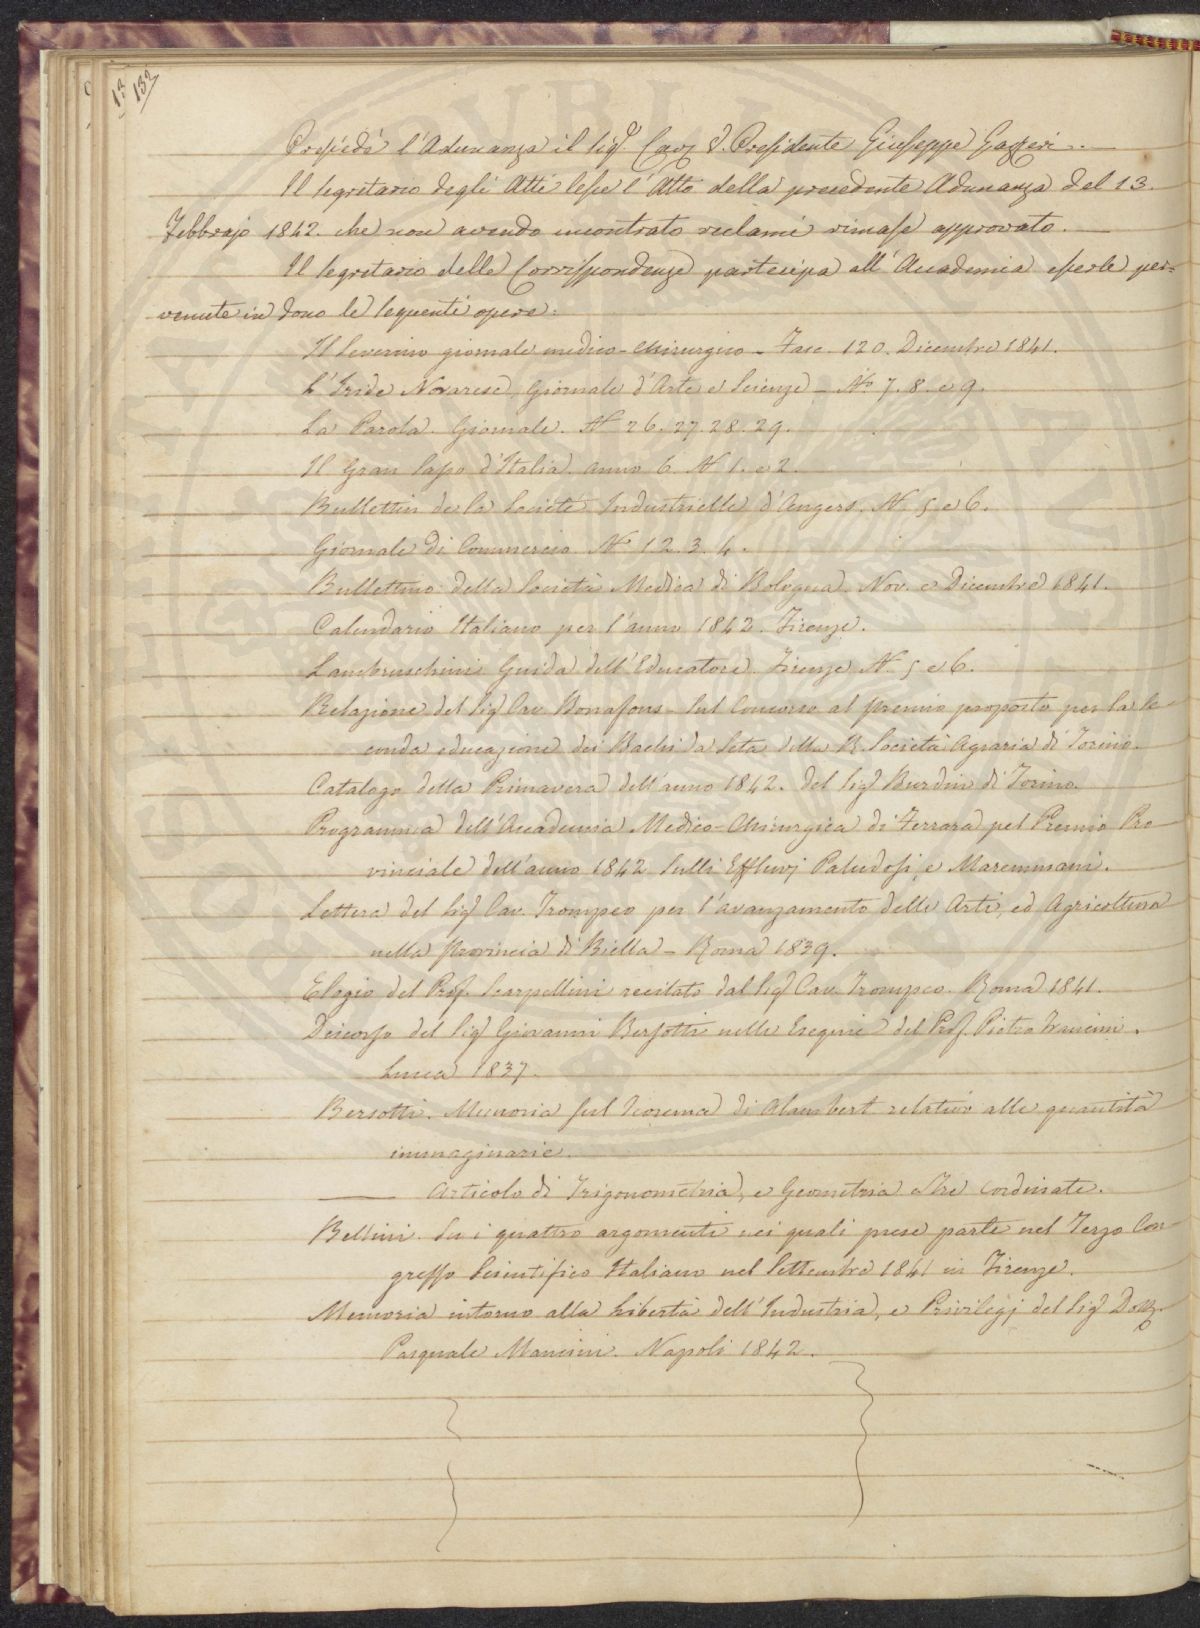 132
Presiedé l'Adunanza il Sig.r Cav. V. Presidente Giuseppe Gazzeri.
Il Segretario degli Atti lesse l'Atto della precedente Adunanza del 13.
Febbrajo 1842. che non avendo incontrato reclami rimase approvato.
Il Segretario delle Corrispondenze partecipa all'Accademia esserle per=
venute in dono le seguenti opere:
Il Severino giornale medico-chirurgico - Fasc. 120. Dicembre 1841.
L'Iride Novarese, Giornale d'Arte e Scienze - N.o 7. 8. e 9.
La Parola. Giornale. N. 26. 27. 28. 29.
Il Gran Sasso d'Italia. anno 6. N. 1. e 2.
Bullettin de la Societé Industrielle d'Angers. N. 5 e 6.
Giornale di Commercio. N. 1 2. 3. 4.
Bullettino della Società Medica di Bologna. Nov. e Dicembre 1841.
Calendario Italiano per l'anno 1842. Firenze.
Lambruschini Guida dell'Educatore. Firenze N. 5 e 6.
Relazione del Sig. Cav. Bonafous - Sul Concorso al premio proposto per la Se
conda educazione dei Bachi da Seta della R. Società Agraria di Torino.
Catalogo della Primavera dell'anno 1842. del Sig. Burdin di Torino.
Programma dell'Accademia Medico-Chirurgica di Ferrara pel Premio Pro
vinciale dell'anno 1842 Sulli Effluvj Paludosi, e Maremmani.
Lettera del Sig. Cav. Trompeo per l'avanzamento delle Arti, ed Agricoltura
nella Provincia di Biella - Roma 1839.
Elogio del Prof. Scarpellini recitato dal Sig. Cav. Trompeo. Roma 1841.
Discorso del Sig. Giovanni Bersotti nelle Esequie del Prof. Pietro Francini.
Lucca 1837.
Bersotti. Memoria sul Teorema di Alambert relativo alle quantità
immaginarie.
——— Articolo di Trigonometria, e Geometria a tre cordinate.
Bellini. Su i quattro argomenti nei quali prese parte nel Terzo Con
gresso Scientifico Italiano nel Settembre 1841 in Firenze.
Memoria intorno alla Libertà dell'Industria, e Privilegj del Sig.
Pasquale Mancini. Napoli 1842.